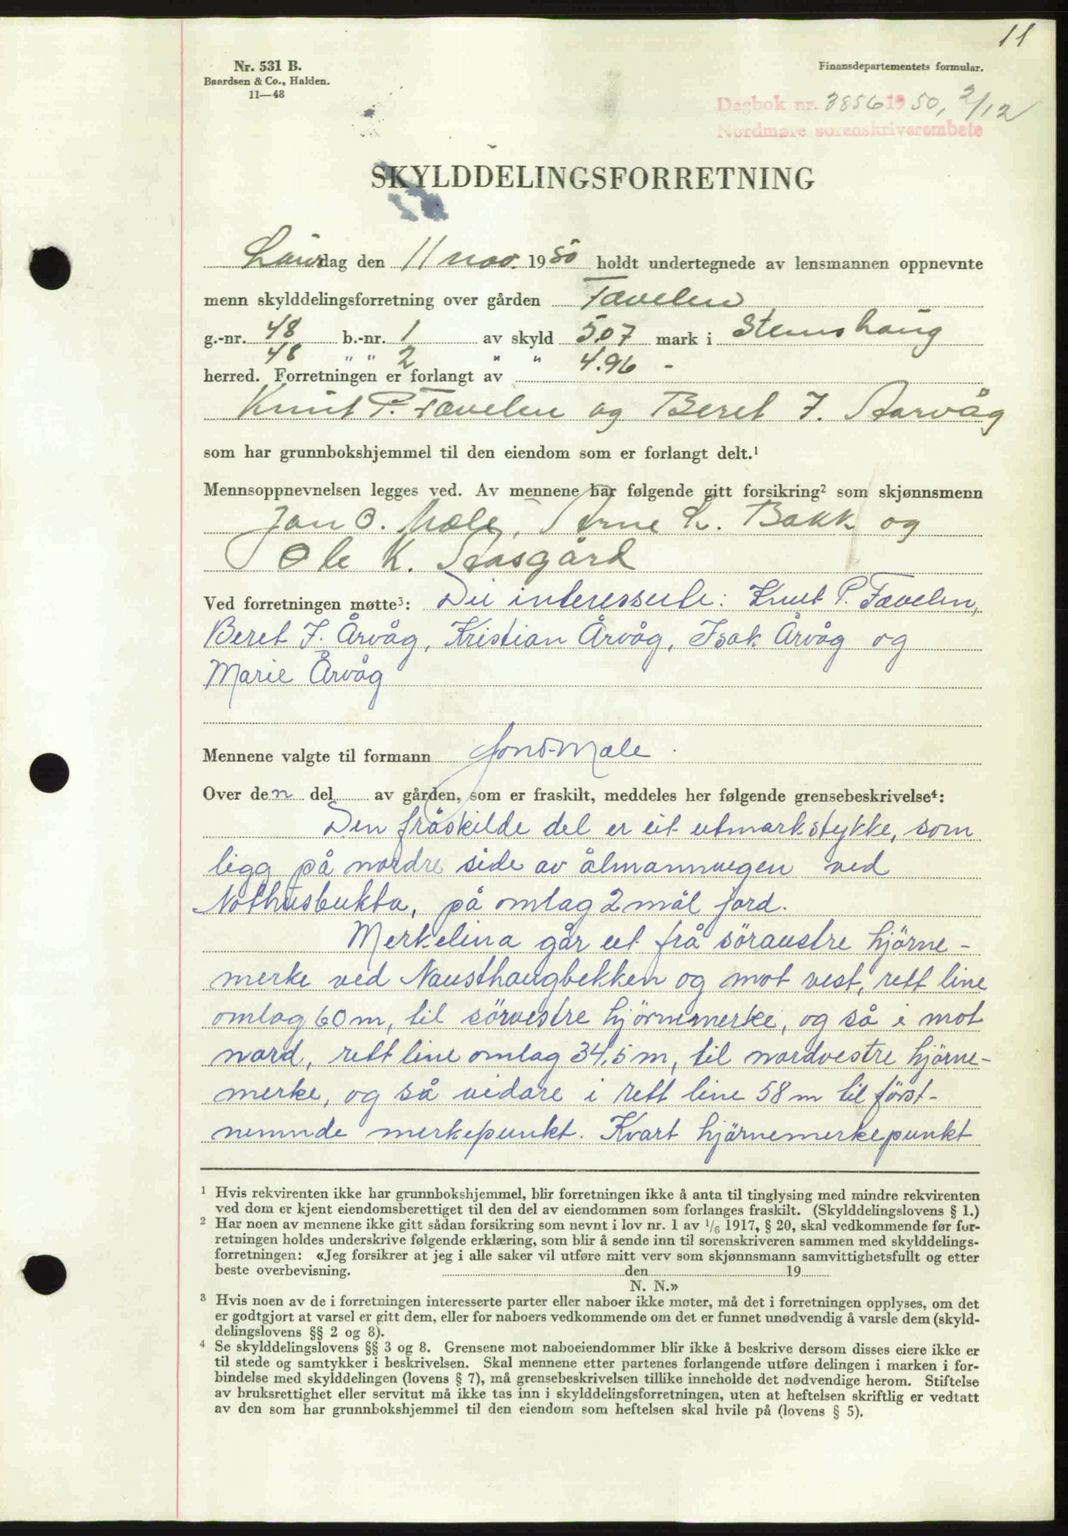 11
Nr. 531 B.
Baardsen & Co., Halden.
11—48
Finansdepartementets formular.
Dagbok nr. 3856 1950, 2/12
Nordmøre sorenskriverembete
SKYLDDELINGSFORRETNING
Laurdag den 11 nov. 1950 holdt undertegnede av lensmannen oppnevnte
menn skylddelingsforretning over gården Tævelen
g.-nr. 48 b.-nr. 1 av skyld 5.07 mark i Stemshaug
48 " " 2 " " 4.96 -
herred. Forretningen er forlangt av
Knut P. Tævelen og Beret J. Aarvåg
som har grunnbokshjemmel til den eiendom som er forlangt delt.¹
Mennsoppnevnelsen legges ved. Av mennene har følgende gitt forsikring² som skjønnsmenn
Jon O. Mæle, Arne L. Bakk og
Ole K. Aasgård
Ved forretningen møtte³: Dei interesserte: Knut P. Tævelen,
Beret J. Årvåg, Kristian Årvåg, Isak Årvåg og
Marie Årvåg
Mennene valgte til formann Jon O. Mæle.
Over den del av gården, som er fraskilt, meddeles her følgende grensebeskrivelse⁴:
Den fråskilde del er eit utmarkstykke, som
ligg på nordre side av ålmannvegen ved
Nothusbukta, på omlag 2 mål jord.
Merkelina går ut frå söraustre hjörne-
merke ved Nausthaugbekken og mot vest, rett line
omlag 60 m, til sörvestre hjörnemerke, og så i mot
nord, rett line omlag 34,5 m, til nordvestre hjörne-
merke, og så vidare i rett line 58 m til först-
nemnde merkepunkt. Kvart hjörnemerkepunkt
¹ Hvis rekvirenten ikke har grunnbokshjemmel, blir forretningen ikke å anta til tinglysing med mindre rekvirenten
ved dom er kjent eiendomsberettiget til den del av eiendommen som forlanges fraskilt. (Skylddelingslovens § 1.)
² Har noen av mennene ikke gitt sådan forsikring som nevnt i lov nr. 1 av 1/6 1917, § 20, skal vedkommende før for-
retningen holdes underskrive følgende erklæring, som blir å sende inn til sorenskriveren sammen med skylddelings-
forretningen: «Jeg forsikrer at jeg i alle saker vil utføre mitt verv som skjønnsmann samvittighetsfullt og etter
beste overbevisning. den 19
N. N.»
³ Hvis noen av de i forretningen interesserte parter eller naboer ikke møter, må det i forretningen opplyses, om det
er godtgjort at varsel er gitt dem, eller for naboers vedkommende om det er funnet unødvendig å varsle dem (skyld-
delingslovens §§ 2 og 8).
⁴ Se skylddelingslovens §§ 3 og 8. Grensene mot naboeiendommer blir ikke å beskrive dersom disses eiere ikke er
til stede og samtykker i beskrivelsen. Skal mennene etter partenes forlangende utføre delingen i marken i for-
bindelse med skylddelingen (lovens § 7), må grensebeskrivelsen tillike inneholde det nødvendige herom. Stiftelse
av bruksrettighet eller servitut må ikke tas inn i skylddelingsforretningen, uten at heftelsen skriftlig er vedtatt
av den som har grunnbokshjemmel til den eiendom som heftelsen skal hvile på (lovens § 5).